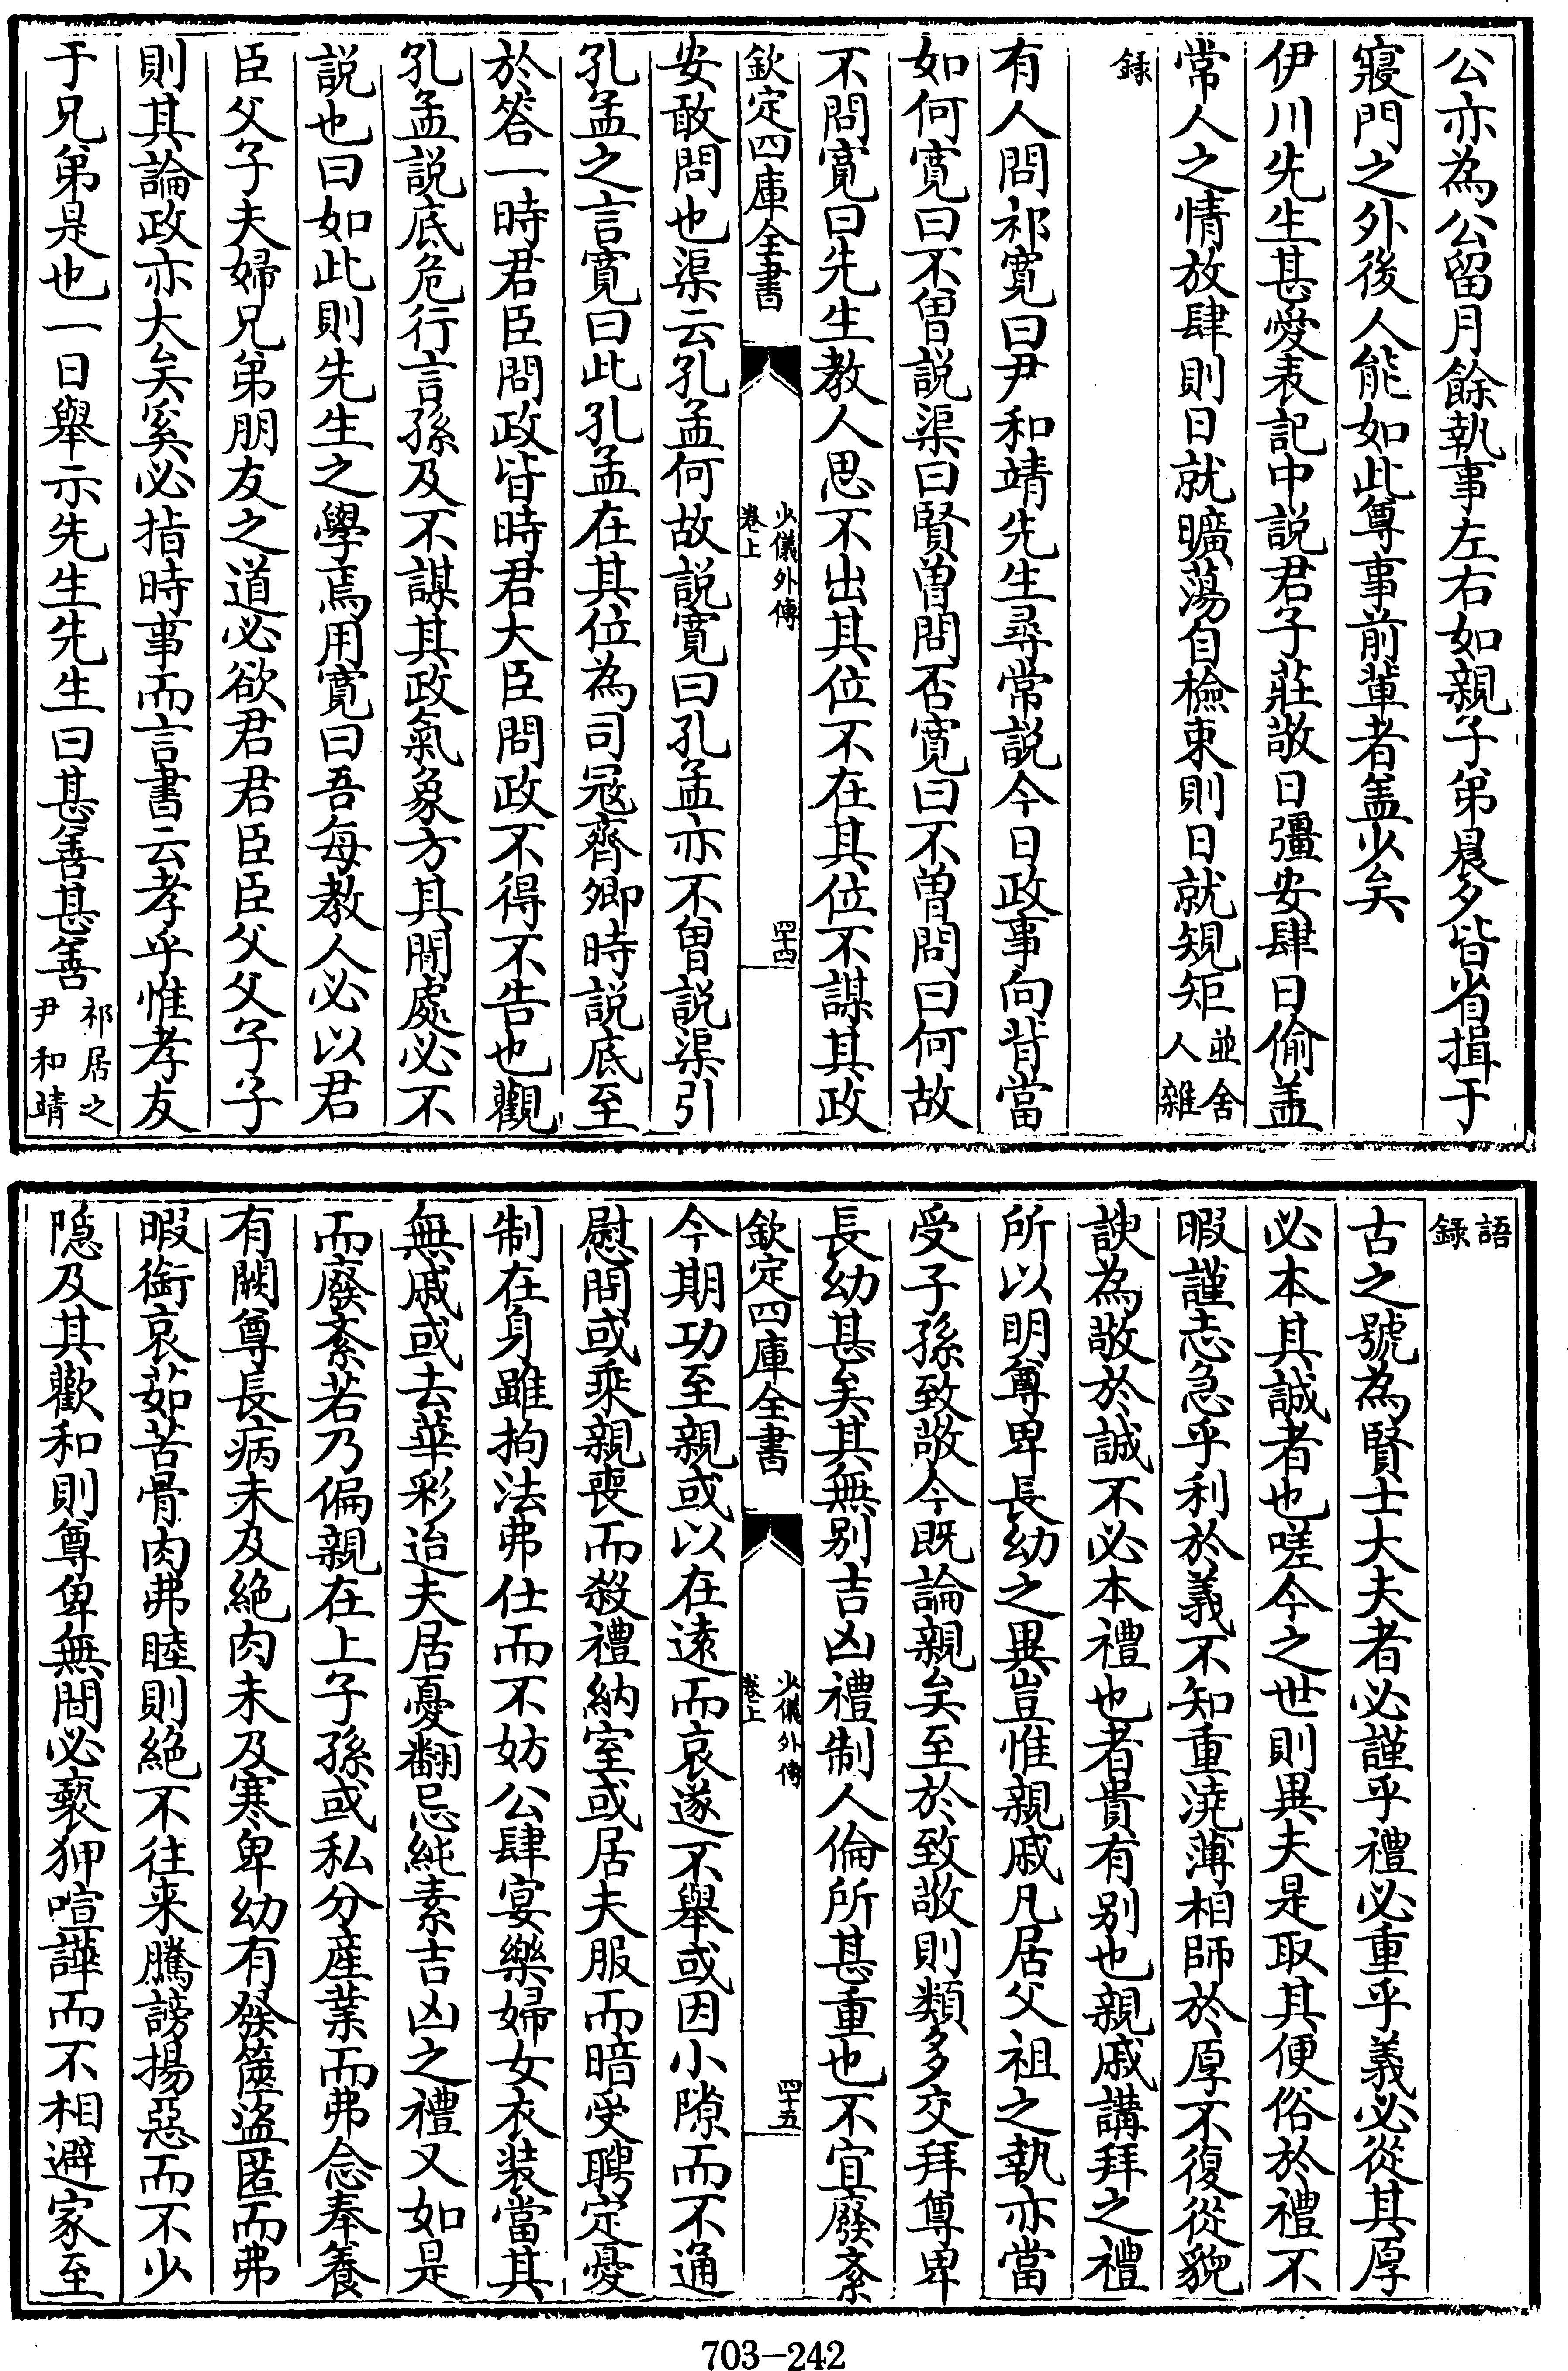 公亦為公留月餘執事左右如親子弟晨夕皆省揖于
寢門之外後人能如此尊事前輩者盖少矣
伊川先生甚愛表記中説君子莊敬日彊安肆日偷盖
常人之情放肆則日就曠蕩自檢束則日就規矩並舍人雜
錄
有人問祁寬曰尹和靖先生尋常説今日政事向背當
如何寬曰不曽説渠曰賢曽問否寬曰不曽問曰何故
不問寬曰先生教人思不出其位不在其位不謀其政
欽定四庫全書 少儀外傳卷上 四十四
安敢問也渠云孔孟何故説寬曰孔孟亦不曽説渠引
孔孟之言寬曰此孔孟在其位為司冦齊卿時説底至
於答一時君臣問政皆時君大臣問政不得不告也觀
孔孟説底危行言孫及不謀其政氣象方其閒處必不
説也曰如此則先生之學焉用寬曰吾每教人必以君
臣父子夫婦兄弟朋友之道必欲君君臣臣父父子子
則其論政亦大矣奚必指時事而言書云孝乎惟孝友
于兄弟是也一日舉示先生先生曰甚善甚善祁居之尹和靖
語錄
古之號為賢士大夫者必謹乎禮必重乎義必從其厚
必本其誠者也嗟今之世則異夫是取其便俗於禮不
暇謹志急乎利於義不知重澆薄相師於厚不復從貌
諛為敬於誠不必本禮也者貴有别也親戚講拜之禮
所以明尊卑長幼之異豈惟親戚凡居父祖之執亦當
受子孫致敬今既論親矣至於致敬則類多交拜尊卑
長幼甚矣其無别吉凶禮制人倫所甚重也不宜廢紊
欽定四庫全書 少儀外傳卷上 四十五
今期功至親或以在逺而哀遂不舉或因小隙而不通
慰問或乘親喪而殺禮納室或居夫服而暗受聘定憂
制在身雖拘法弗仕而不妨公肆宴樂婦女衣装當其
無戚或去華彩迨夫居憂翻忌純素吉凶之禮又如是
而廢紊若乃偏親在上子孫或私分産業而弗念奉養
有闕尊長病未及絶肉未及寒卑幼有發篋盜匿而弗
暇銜哀茹苦骨肉弗睦則絶不往来騰謗揚惡而不少
隐及其歡和則尊卑無間必褻狎喧譁而不相避家至
703—242